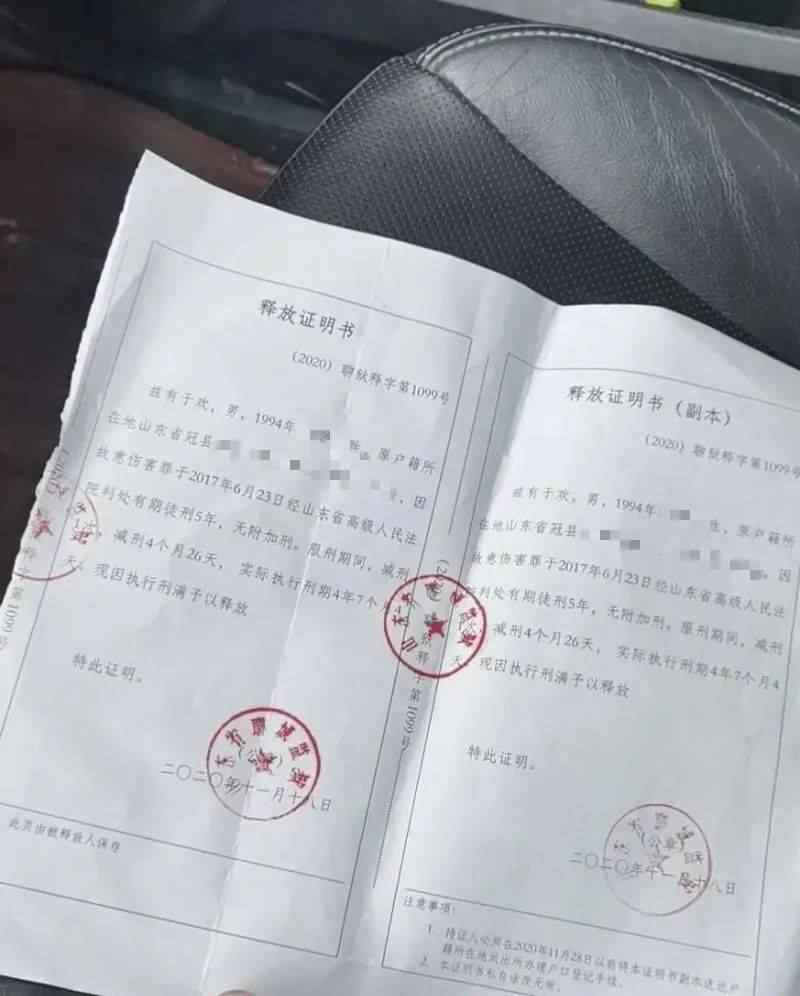 释放证明书
(2020)聊狱释字第1099号
兹有于欢，男，1994年 生，原户籍所
在地山东省冠县 号，因
故意伤害罪于2017年6月23日经山东省高级人民法
院判处有期徒刑5年，无附加刑。服刑期间，减刑
1次，减刑4个月26天，实际执行刑期4年7个月4
天，现因执行刑满予以释放
特此证明。
山东省聊城监狱
(公章)
二〇二〇年十一月十八日
此页由被释放人保存
字第1099号
山东省聊城监狱
聊狱释字第1099号
释放证明书(副本)
(2020)聊狱释字第1099号
兹有于欢，男，1994年 生，原户籍所
在地山东省冠县 因
故意伤害罪于2017年6月23日经山东省高级人民法
判处有期徒刑5年，无附加刑。服刑期间，减刑
减刑4个月26天，实际执行刑期4年7个月4
天，现因执行刑满予以释放
特此证明。
(公章)
二〇二〇年十一月十八日
注意事项：
1. 持证人必须在2020年11月28日以前将本证明书副本送达户
籍所在地派出所办理户口登记手续。
2. 本证明书私自涂改无效。